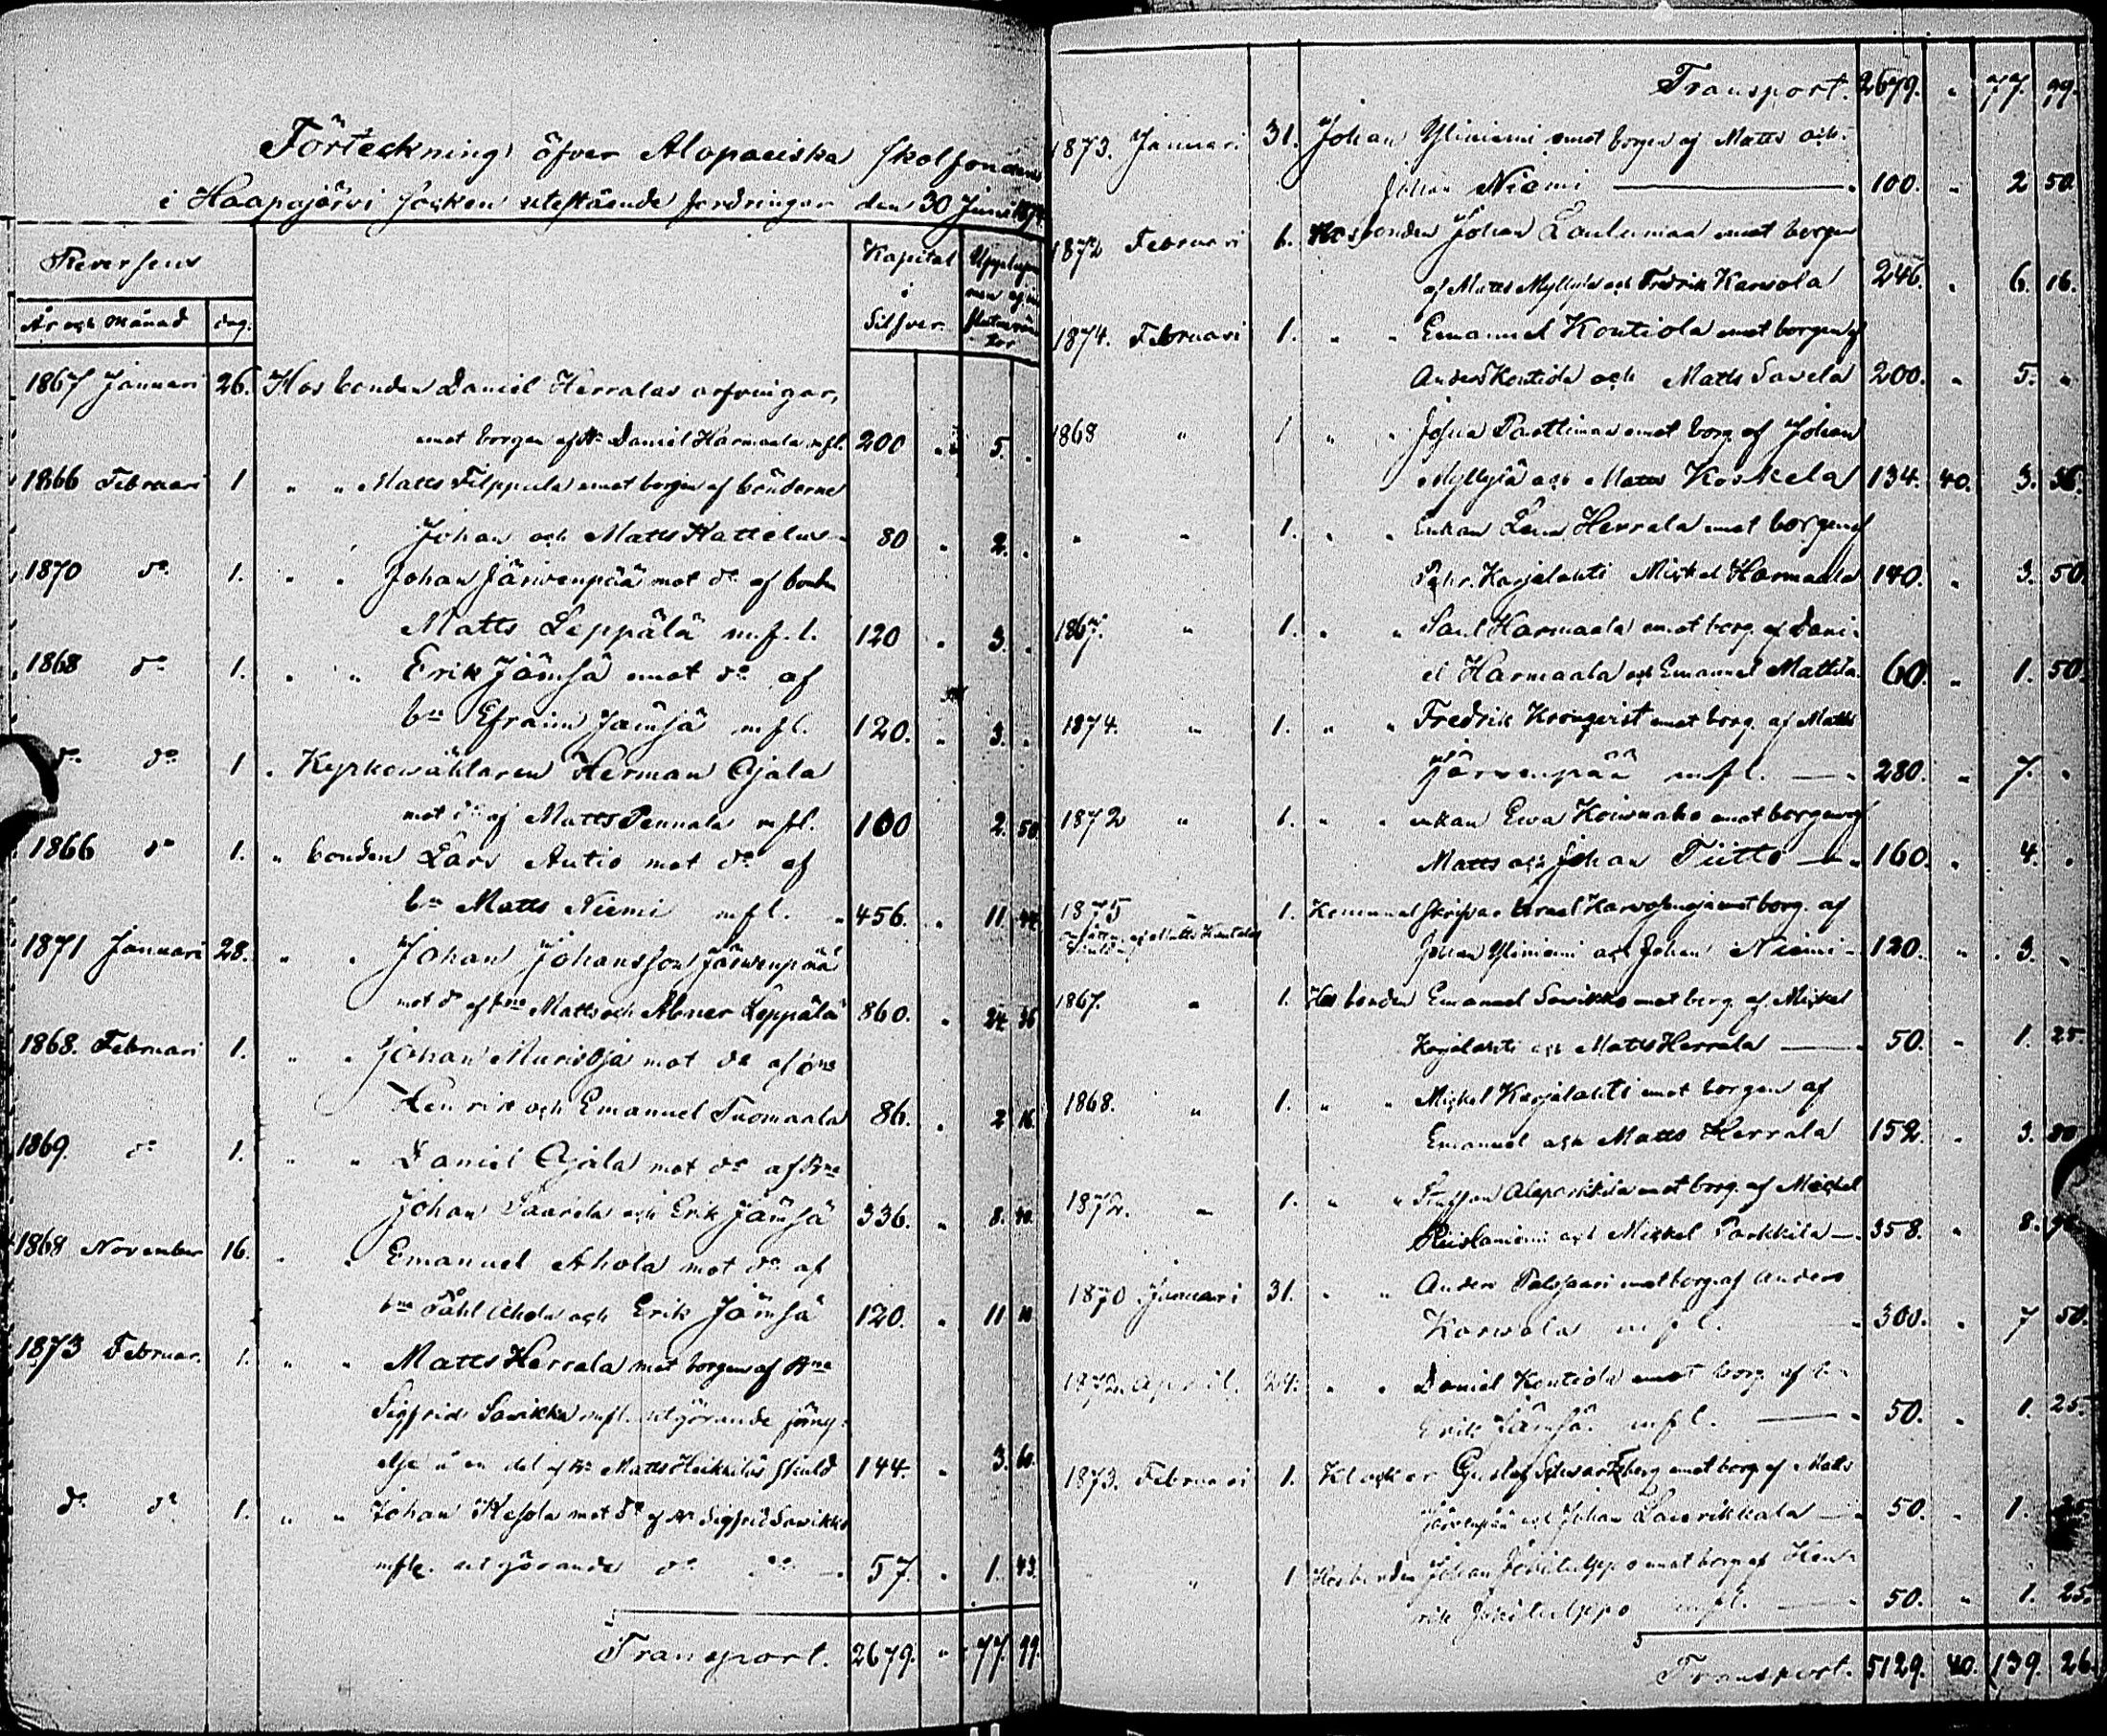 Förteckning öfver Alopaeiska skolfondens
i Haapajärvi socken utestående fordringar den 30 Juni
Reversens
Kapital i Silfver
År och Månad dag.
1867 Januari 26. Hos bonden Daniel Herralas arfvingar,
emot borgen af Daniel Harmaala mfl. 200 " 5. "
1866 Februari 1 " " Matts Filppula emot borgen af bönderne
Johan och Matts Kattelus 80 " 2. "
1870 do 1. " " Johan Järvenpää mot do af bonden
Matts Leppälä m.f.l. 120 " 3. "
1868 do 1. " " Erik Jämsä emot do af
bn Efraim Jämsä mfl. 120. " 3. "
do do 1 " Kyrkowäktaren Herman Ojala
mot do af Matts Pennala mfl. 100 2. 50
1866 do 1. " bonden Lars Autio mot do af
bn Matts Niemi mfl. " 456. " 11 44
1871 Januari 28. " " Johan Johansson Järvenpää
mot do af bne Matts och Abner Leppälä 860. " 24 36
1868. Februari 1. " " Johan Muristoja mot do af bne
Henrik och Emanuel Tuomaala 86. " 2 16
1869. do 1. " " Daniel Ojala mot do af Bne
Johan Saarela och Erik Jämsä 336. " 8. 40
1868 November 16. " " Emanuel Ahola mot do af
bne Påhl Ahola och Erik Jämsä 120. " 11
1873 Februar. 1. " " Matts Herrala mot borgen af Bne
Sigfrid Savikko mfl. utgörande
en del af Bn Matts Heikkiläs skuld 144. " 3. 60.
do do 1. " " Johan Kesola mot do af Bn Sigfrid Savikko
mfl. utgörande do do 57. " 1. 43.
Transport. 2679. " 77. 99.
Transport. 2679. " 77. 99.
1873. Januari 31. Johan Yliniemi emot borgen af Matts och
Johan Niemi 100. " 2 50
1872 Februari 1. Hos bonden Johan Laulumaa emot borgen
af Matts Myllylä och Fredrik Karvola 246. " 6. 16.
1874. Februari 1. " " Emanuel Kontiola emot borgen af
Anders Kontiola och Matts Savela 200. " 5. "
1868 " 1 " " Josua Paettiman emot borg. af Johan
Myllylä och Matts Koskela 134. 40. 3. 36.
" " 1. " " Enkan Lena Herrala emot borgen af
Karjalahti Mickel Harmaala 140. " 3. 50
1867. " 1. " " Paul Harmaala emot borg. af Dani-
el Harmaala och Emanuel Mattila 60. " 1. 50.
1874. " 1. " " Fredrik Kronqvist emot borg. af Matts
Järvenpää mfl. 280. " 7. "
1872 " 1. " " enkan Ewa Koivuaho emot borgen af
Matts och Johan Tiitto 160. " 4. "
1875 1. Kommunalskrifvar Karvosenoja emot borg. af
Johan Yliniemi och Johan Niemi 120. " 3. "
1867. " 1. Hos bonden Emanuel Savikko emot borg. af Mickel
Karjalahti och Matts Herrala 50. " 1. 25.
1868. " 1. " " Mickel Karjalahti emot borgen af
Emanuel och Matts Herrala 152. " 3. 80
1872. " 1. " " Staffan Alaparkkila emot borg. af Mickel
Ruislaniemi och Mickel Parkkila 358. " 8.
1870 Januari 31. " " Anders Palosaari emot borg. af Anders
Karvola mfl. " 300. " 7 50.
1872. April. 24. " " Daniel Kontiola emot borg. af bn
Erik Jämsä mfl. 50. " 1. 25.
1873. Februari 1. Klockar Gustaf Schwartzberg emot borg. af Matts
Järvenpää och Johan Laurikkala 50. " 1. 25
" 1 Hos bonden Johan Jokitulppo emot borg. af Hen-
rik Jokitulppo mfl. 50. " 1. 25.
Transport. 5129. 40. 139. 26.